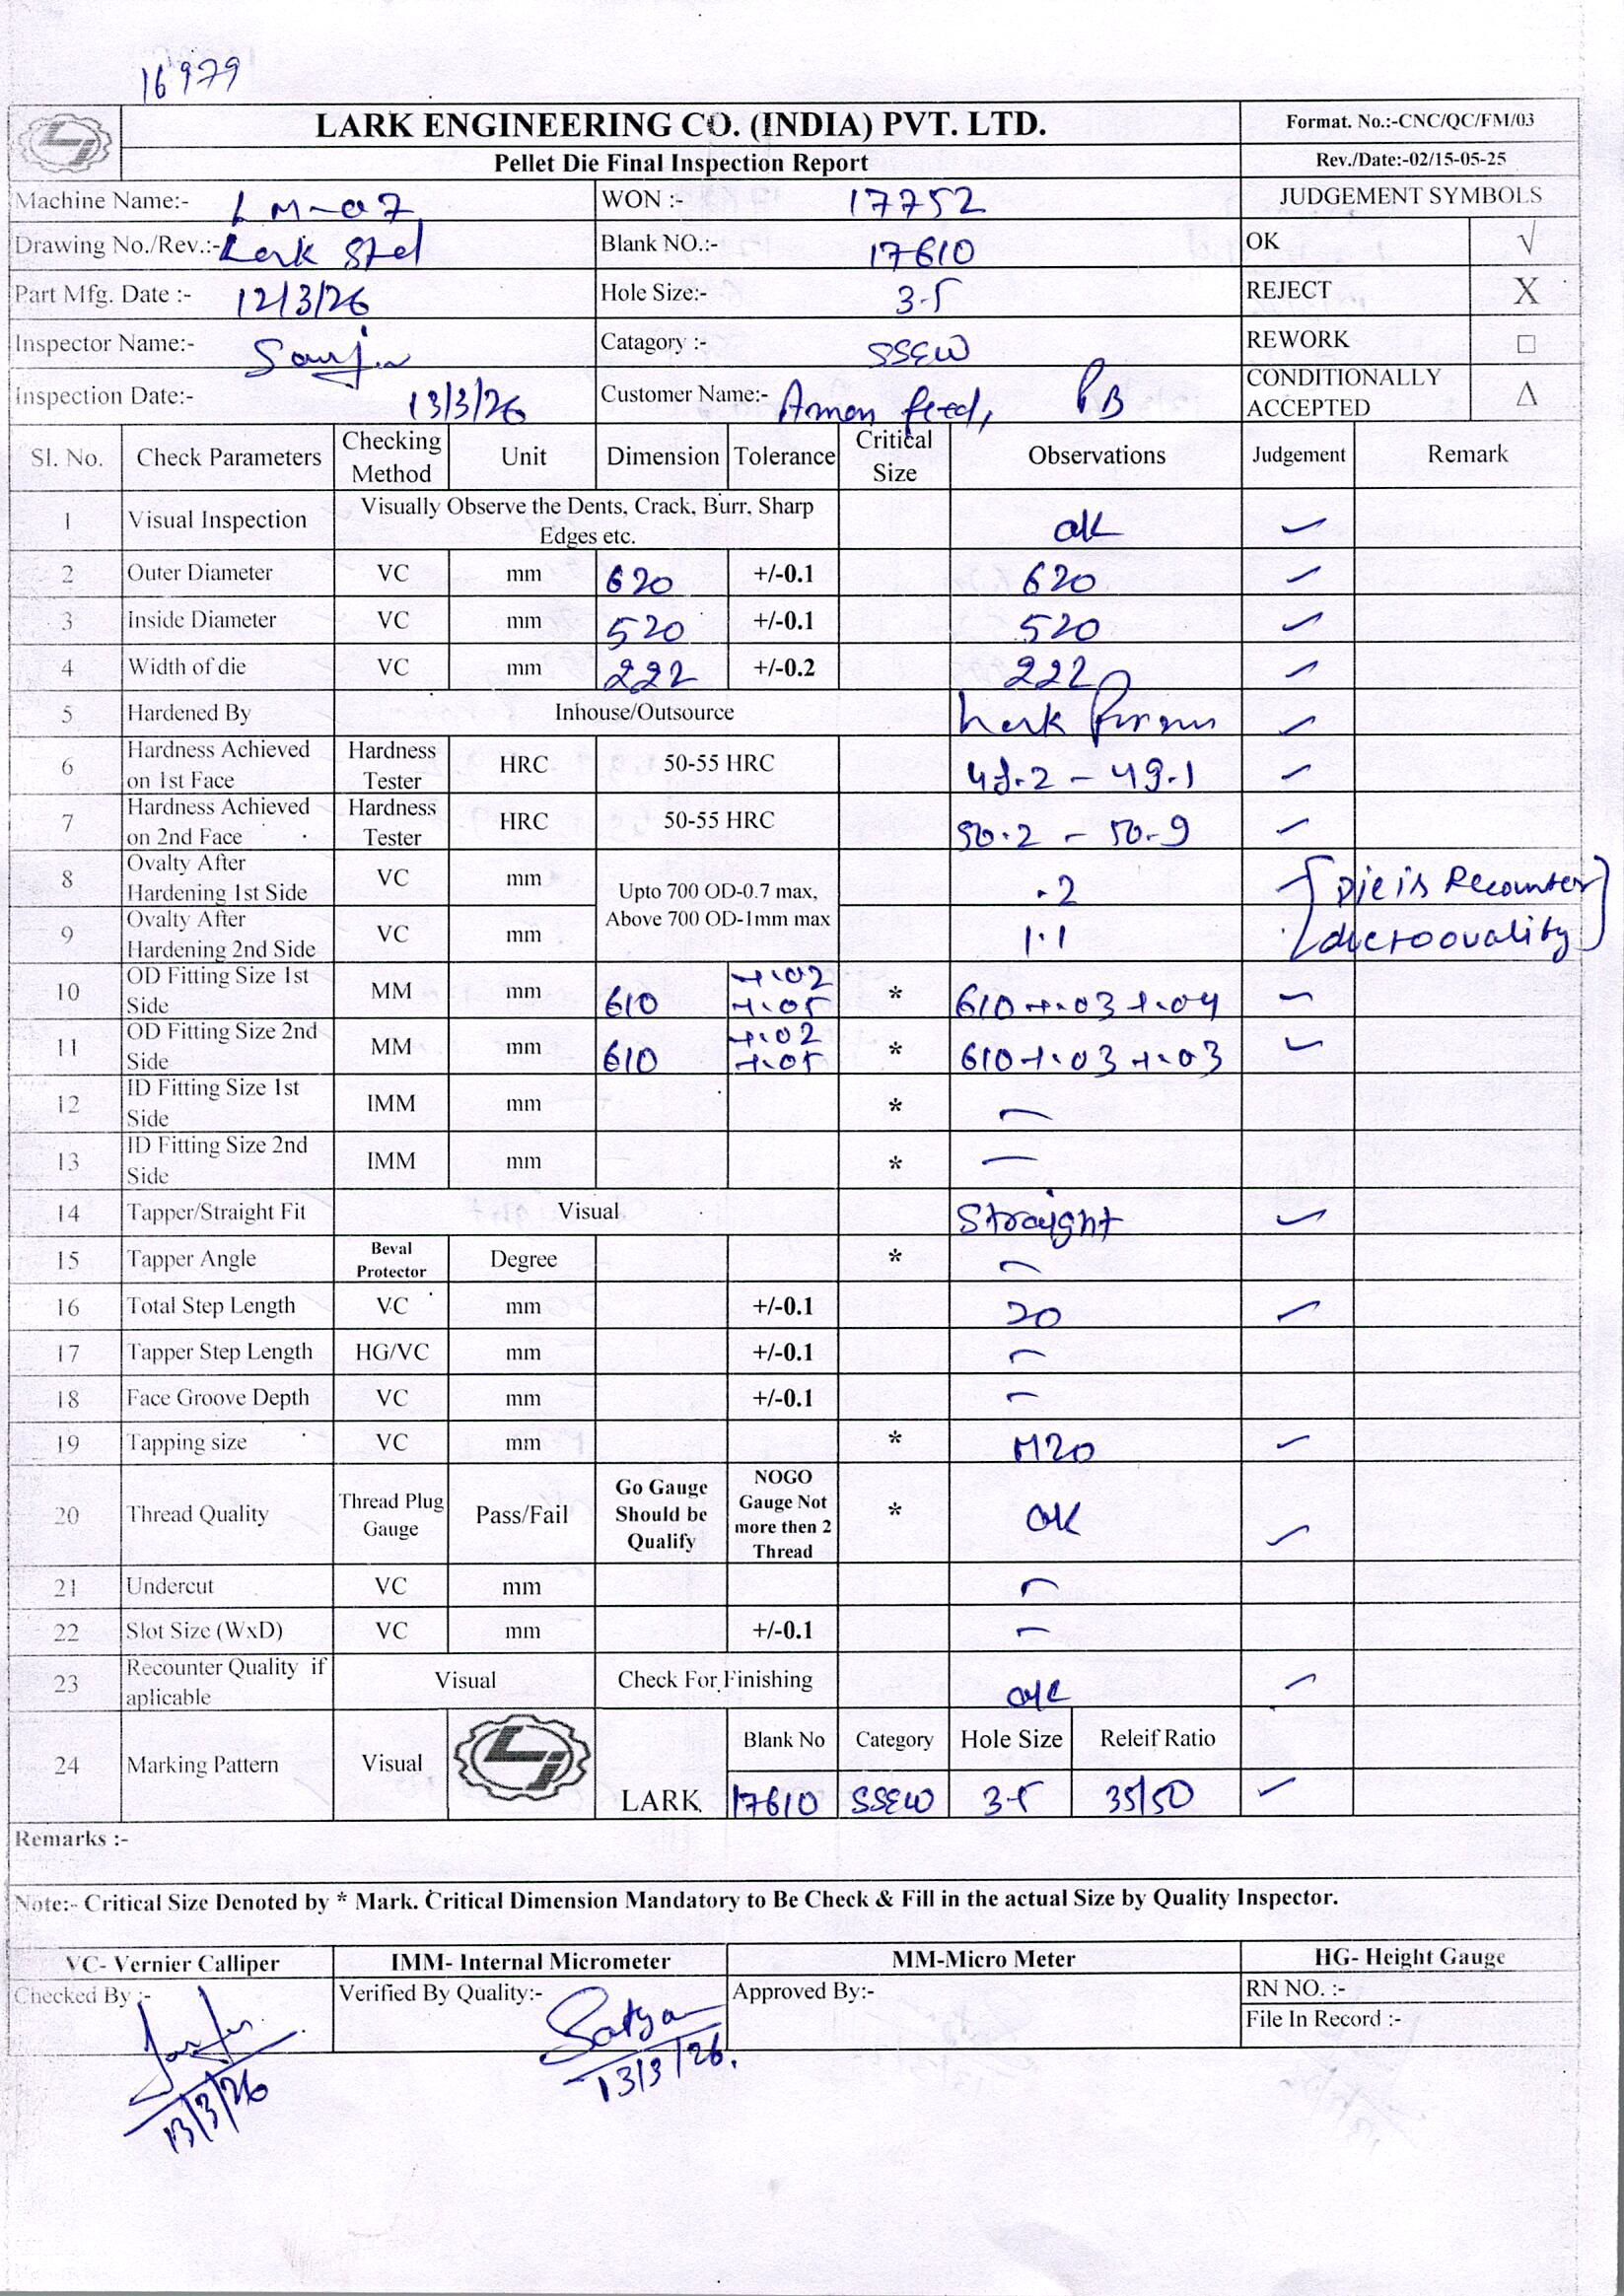 16979
LARK ENGINEERING CO. (INDIA) PVT. LTD.
Format. No.:-CNC/QC/FM/03
Pellet Die Final Inspection Report
Rev./Date:-02/15-05-25
Machine Name:- LM-07 WON :- 17752 JUDGEMENT SYMBOLS
Drawing No./Rev.:- Lark Std Blank NO.:- 17610 OK √
Part Mfg. Date :- 12/3/26 Hole Size:- 3.5 REJECT X
Inspector Name:- Catagory :- SSEW REWORK □
Inspection Date:- 13/3/26 Customer Name:- Aman feed, PB CONDITIONALLY ACCEPTED Δ
Sl. No. Check Parameters Checking Method Unit Dimension Tolerance Critical Size Observations Judgement Remark
1 Visual Inspection Visually Observe the Dents, Crack, Burr, Sharp Edges etc. ok ✓
2 Outer Diameter VC mm 620 +/-0.1 620 ✓
3 Inside Diameter VC mm 520 +/-0.1 520 ✓
4 Width of die VC mm 222 +/-0.2 222 ✓
5 Hardened By Inhouse/Outsource Lark ✓
6 Hardness Achieved on 1st Face Hardness Tester HRC 50-55 HRC 48.2 - 49.1 ✓
7 Hardness Achieved on 2nd Face Hardness Tester HRC 50-55 HRC 50.2 - 50.9 ✓
8 Ovalty After Hardening 1st Side VC mm Upto 700 OD-0.7 max, Above 700 OD-1mm max .2 Die is Recounter
9 Ovalty After Hardening 2nd Side VC mm 1.1 due to ovality
10 OD Fitting Size 1st Side MM mm 610 +.02 +.05 * 610 +.03 +.04 ✓
11 OD Fitting Size 2nd Side MM mm 610 +.02 +.05 * 610 +.03 +.03 ✓
12 ID Fitting Size 1st Side IMM mm * —
13 ID Fitting Size 2nd Side IMM mm * —
14 Tapper/Straight Fit Visual Straight ✓
15 Tapper Angle Beval Protector Degree * —
16 Total Step Length VC mm +/-0.1 20 ✓
17 Tapper Step Length HG/VC mm +/-0.1 —
18 Face Groove Depth VC mm +/-0.1 —
19 Tapping size VC mm * M20 ✓
20 Thread Quality Thread Plug Gauge Pass/Fail Go Gauge Should be Qualify NOGO Gauge Not more then 2 Thread * OK ✓
21 Undercut VC mm —
22 Slot Size (WxD) VC mm +/-0.1 —
23 Recounter Quality if aplicable Visual Check For Finishing ok ✓
24 Marking Pattern Visual LARK Blank No Category Hole Size Releif Ratio
17610 SSEW 3.5 35/50 ✓
Remarks :-
Note:- Critical Size Denoted by * Mark. Critical Dimension Mandatory to Be Check & Fill in the actual Size by Quality Inspector.
VC- Vernier Calliper IMM- Internal Micrometer MM-Micro Meter HG- Height Gauge
Checked By :- Verified By Quality:- Satya Approved By:- RN NO. :-
File In Record :-
13/3/26 13/3/26.